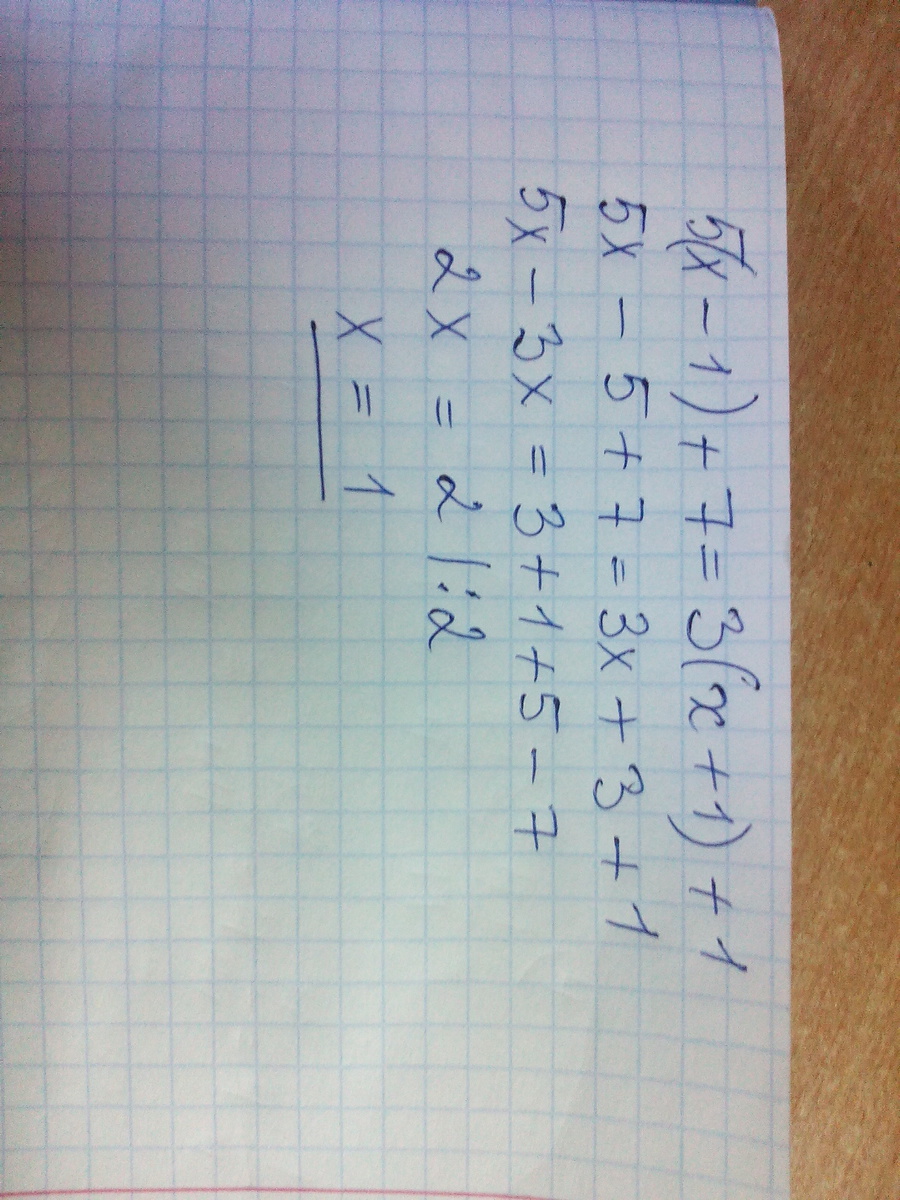 5(x - 1) + 7 = 3(x + 1) + 1
5x - 5 + 7 = 3x + 3 + 1
5x - 3x = 3 + 1 + 5 - 7
2x = 2 /:2
x = 1